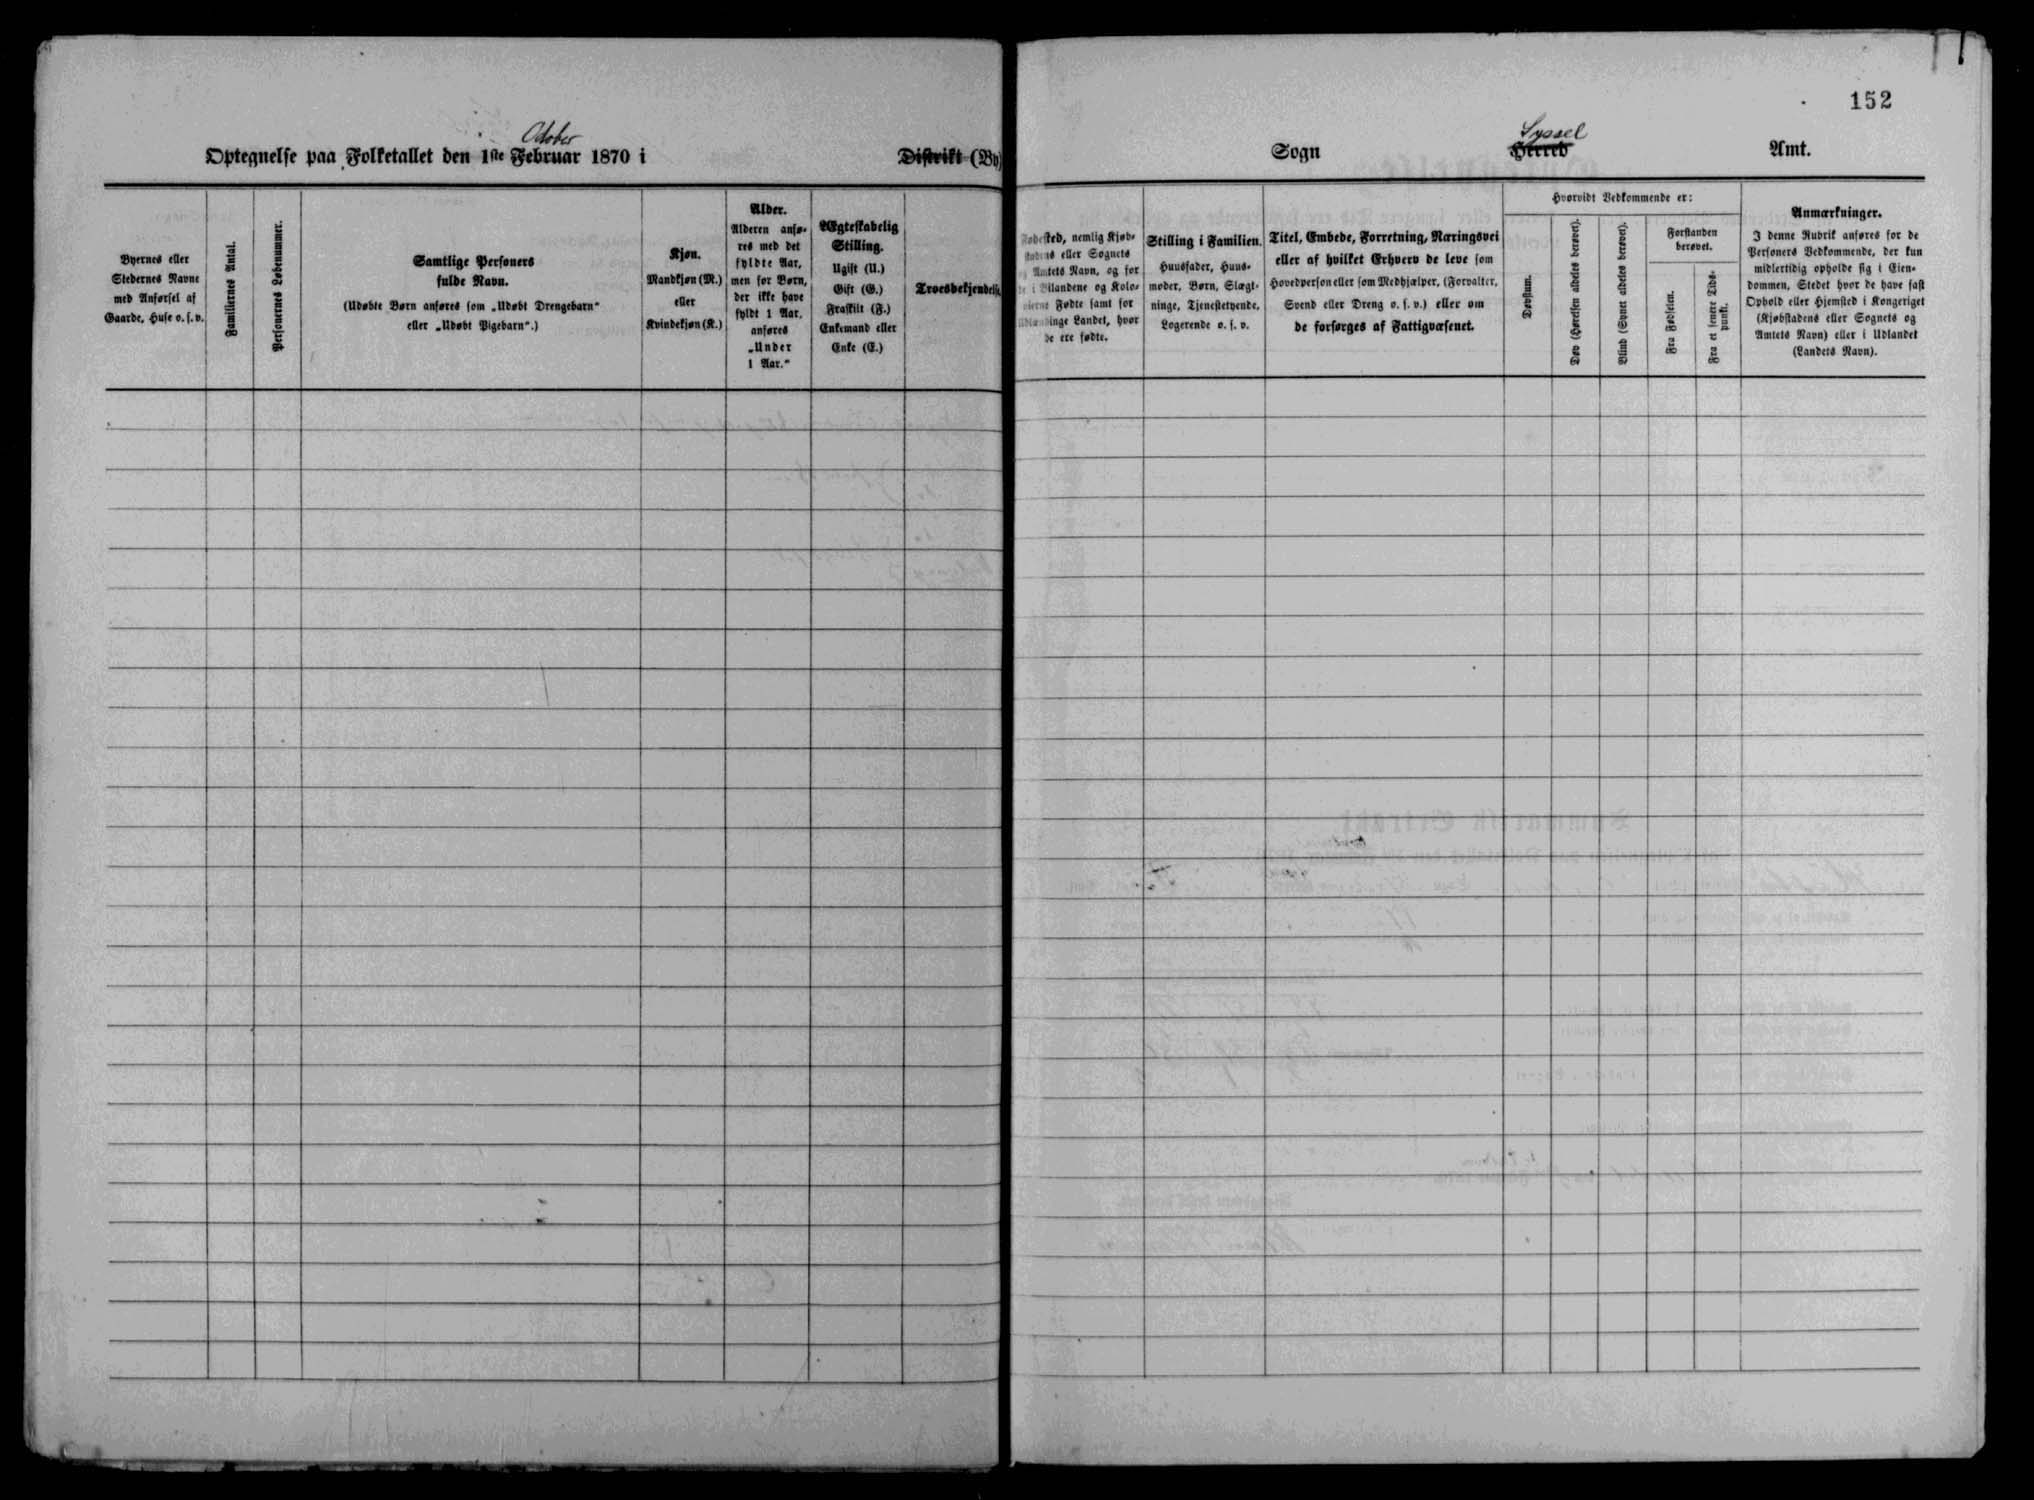 152
October
Syssel
Optegnelse paa Folketallet den 1ste Februar 1870 i Distrikt (By) Sogn Herred Amt.
Byernes eller
Stedernes Navne
med Anførsel af
Gaarde, Huse o. s. v.
Familiernes Antal.
Personernes Løbenummer.
Samtlige Personers
fulde Navn.
(Udøbte Børn anføres som „Udøbt Drengebarn“
eller „Udøbt Pigebarn“.)
Kjøn.
Mandkjøn (M.)
eller
Kvindekjøn (K.)
Alder.
Alderen anfø-
res med det
fyldte Aar,
men for Børn,
der ikke have
fyldt 1 Aar,
anføres
„Under
1 Aar.“
Ægteskabelig
Stilling.
Ugift (U.)
Gift (G.)
Fraskilt (F.)
Enkemand eller
Enke (E.)
Troesbekjendelse.
Fødested, nemlig Kjøb-
stadens eller Sognets
og Amtets Navn, og for
de i Bilandene og Kolo-
nierne Fødte samt for
Udlændinge Landet, hvor
de ere fødte.
Stilling i Familien.
Huusfader, Huus-
moder, Børn, Slægt-
ninge, Tjenestetyende,
Logerende o. s. v.
Titel, Embede, Forretning, Næringsvei
eller af hvilket Erhverv de leve som
Hovedperson eller som Medhjælper, (Forvalter,
Svend eller Dreng o. s. v.) eller om
de forsørges af Fattigvæsenet.
Hvorvidt Vedkommende er:
Døvstum.
Døv (Hørelsen aldeles berøvet).
Blind (Synet aldeles berøvet).
Forstanden
berøvet.
Fra Fødselen.
Fra et senere Tids-
punkt.
Anmærkninger.
I denne Rubrik anføres for de
Personers Vedkommende, der kun
midlertidig opholde sig i Eien-
dommen, Stedet hvor de have fast
Ophold eller Hjemsted i Kongeriget
(Kjøbstadens eller Sognets og
Amtets Navn) eller i Udlandet
(Landets Navn).